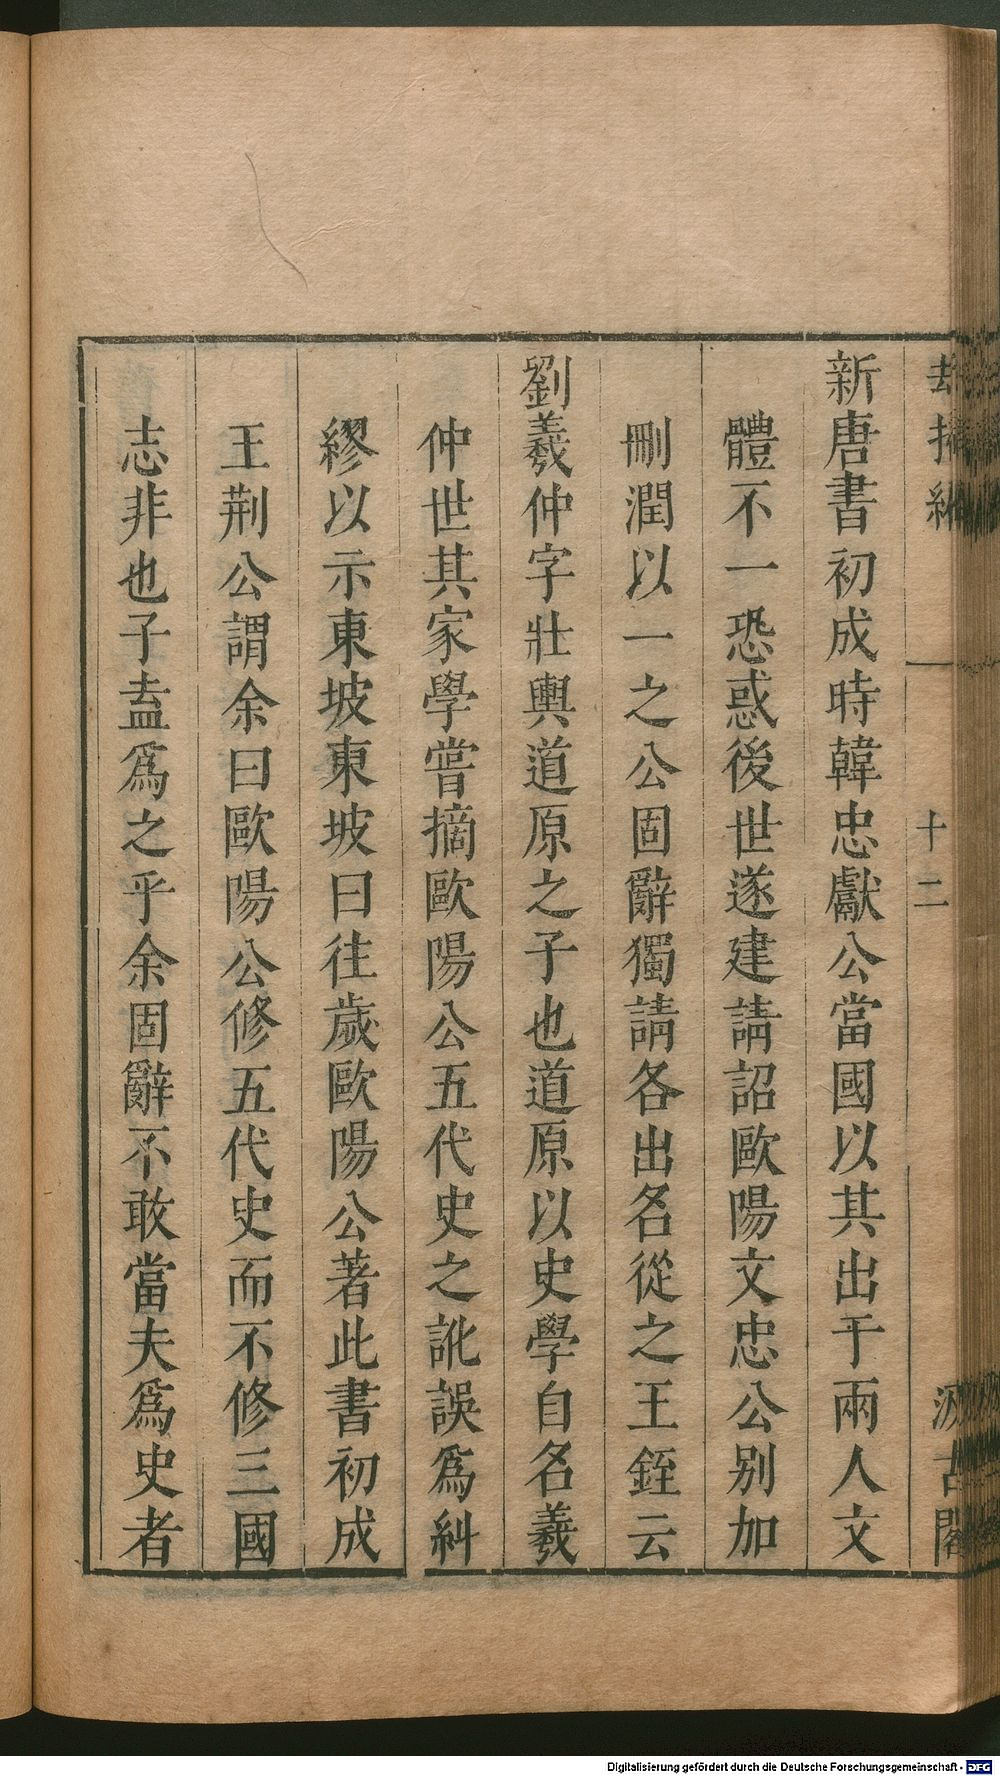 新唐書初成時韓忠獻公當國以其出于兩人文
體不一恐惑後世遂建請詔歐陽文忠公别加
刪潤以一之公固辭獨請各出名從之王銍云
劉羲仲字壯輿道原之子也道原以史學自名羲
仲世其家學嘗摘歐陽公五代史之訛誤爲糾
繆以示東坡東坡曰往歲歐陽公著此書初成
王荆公謂余曰歐陽公修五代史而不修三國
志非也子盍爲之乎余固辭不敢當夫爲史者
十二
汲古閣
Digitalisierung gefördert durch die Deutsche Forschungsgemeinschaft - DFG